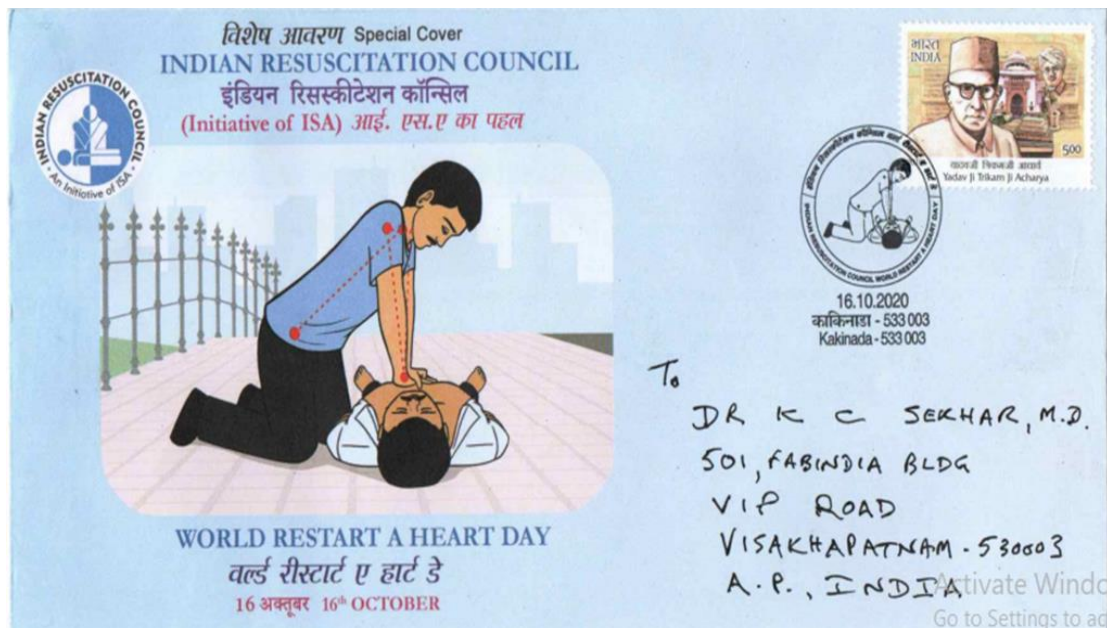 विशेष आवरण Special Cover
INDIAN RESUSCITATION COUNCIL
इंडियन रिसस्कीटेशन कॉन्सिल
(Initiative of ISA) आई. एस.ए का पहल
INDIAN RESUSCITATION COUNCIL
An Initiative of ISA
WORLD RESTART A HEART DAY
वर्ल्ड रीस्टार्ट ए हार्ट डे
16 अक्तूबर 16th OCTOBER
भारत
INDIA
5.00
यादवजी त्रिकमजी आचार्य
Yadav Ji Trikam Ji Acharya
INDIAN RESUSCITATION COUNCIL WORLD RESTART A HEART DAY
16.10.2020
काकिनाडा - 533 003
Kakinada - 533 003
To
DR K C SEKHAR, M.D.
501, FABINDIA BLDG
VIP ROAD
VISAKHAPATNAM - 530003
A.P., INDIA
Activate Windo
Go to Settings to ac